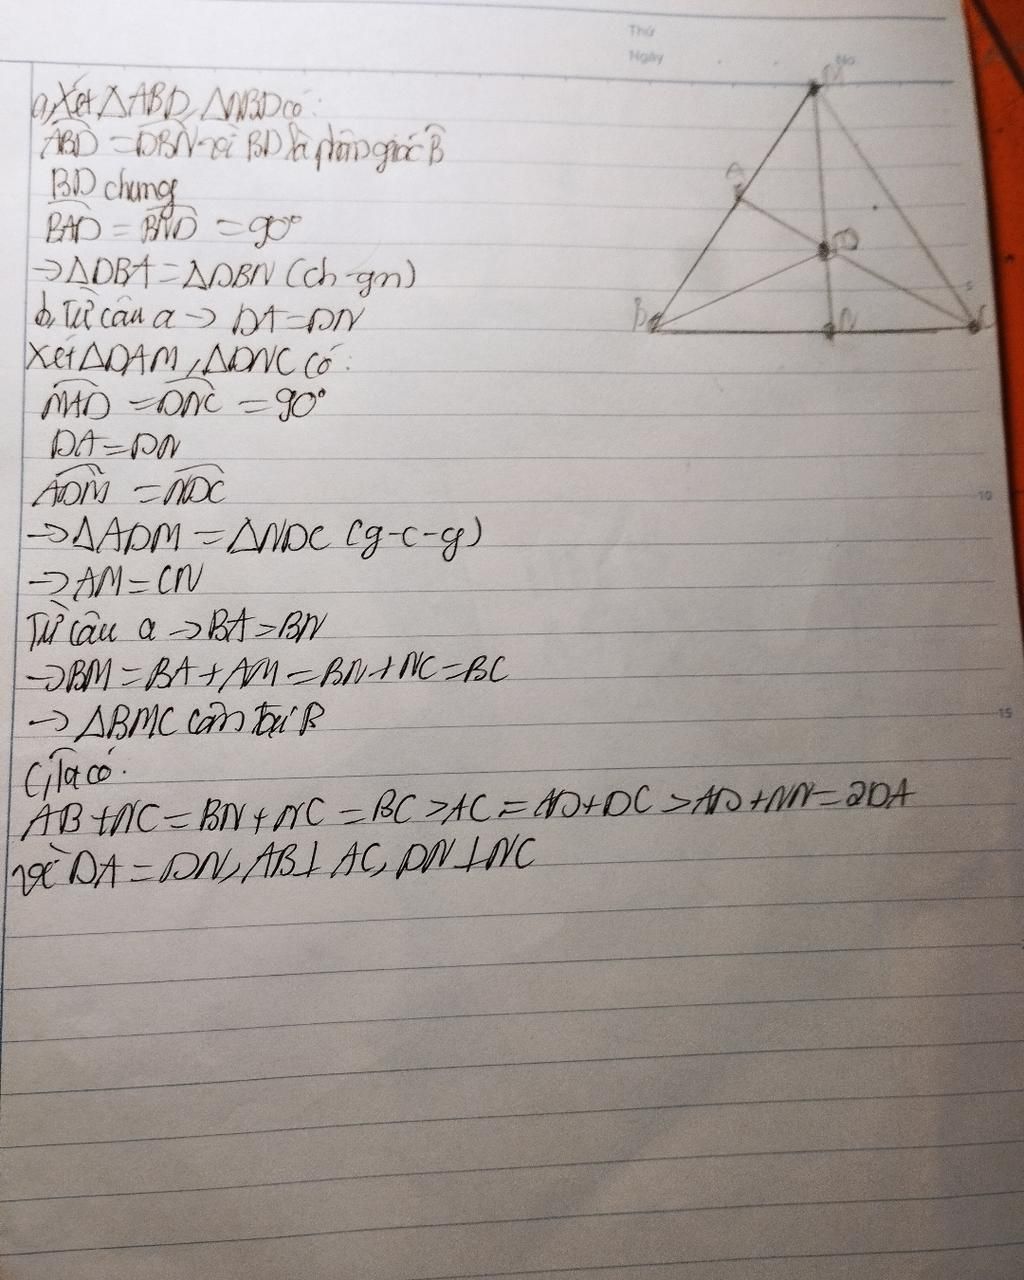 Thứ
Ngày
No
a, Xét △ABD, △NBD có:
ABD = DBN vì BD là phân giác B
BD chung
BAD = BND = 90°
→ △DBA = △DBN (ch-gn)
b, Từ câu a → DA = DN
Xét △DAM, △DNC có:
MAD = DNC = 90°
DA = DN
ADM = NDC
→ △ADM = △NDC (g-c-g)
→ AM = CN
Từ câu a → BA = BN
→ BM = BA + AM = BN + NC = BC
→ △BMC cân tại B
C, Ta có:
AB + NC = BN + NC = BC > AC = AD + DC > AD + NN = 2DA
vì DA = DN, AB ⊥ AC, DN ⊥ NC
M
A
D
B
N
C
5
10
15